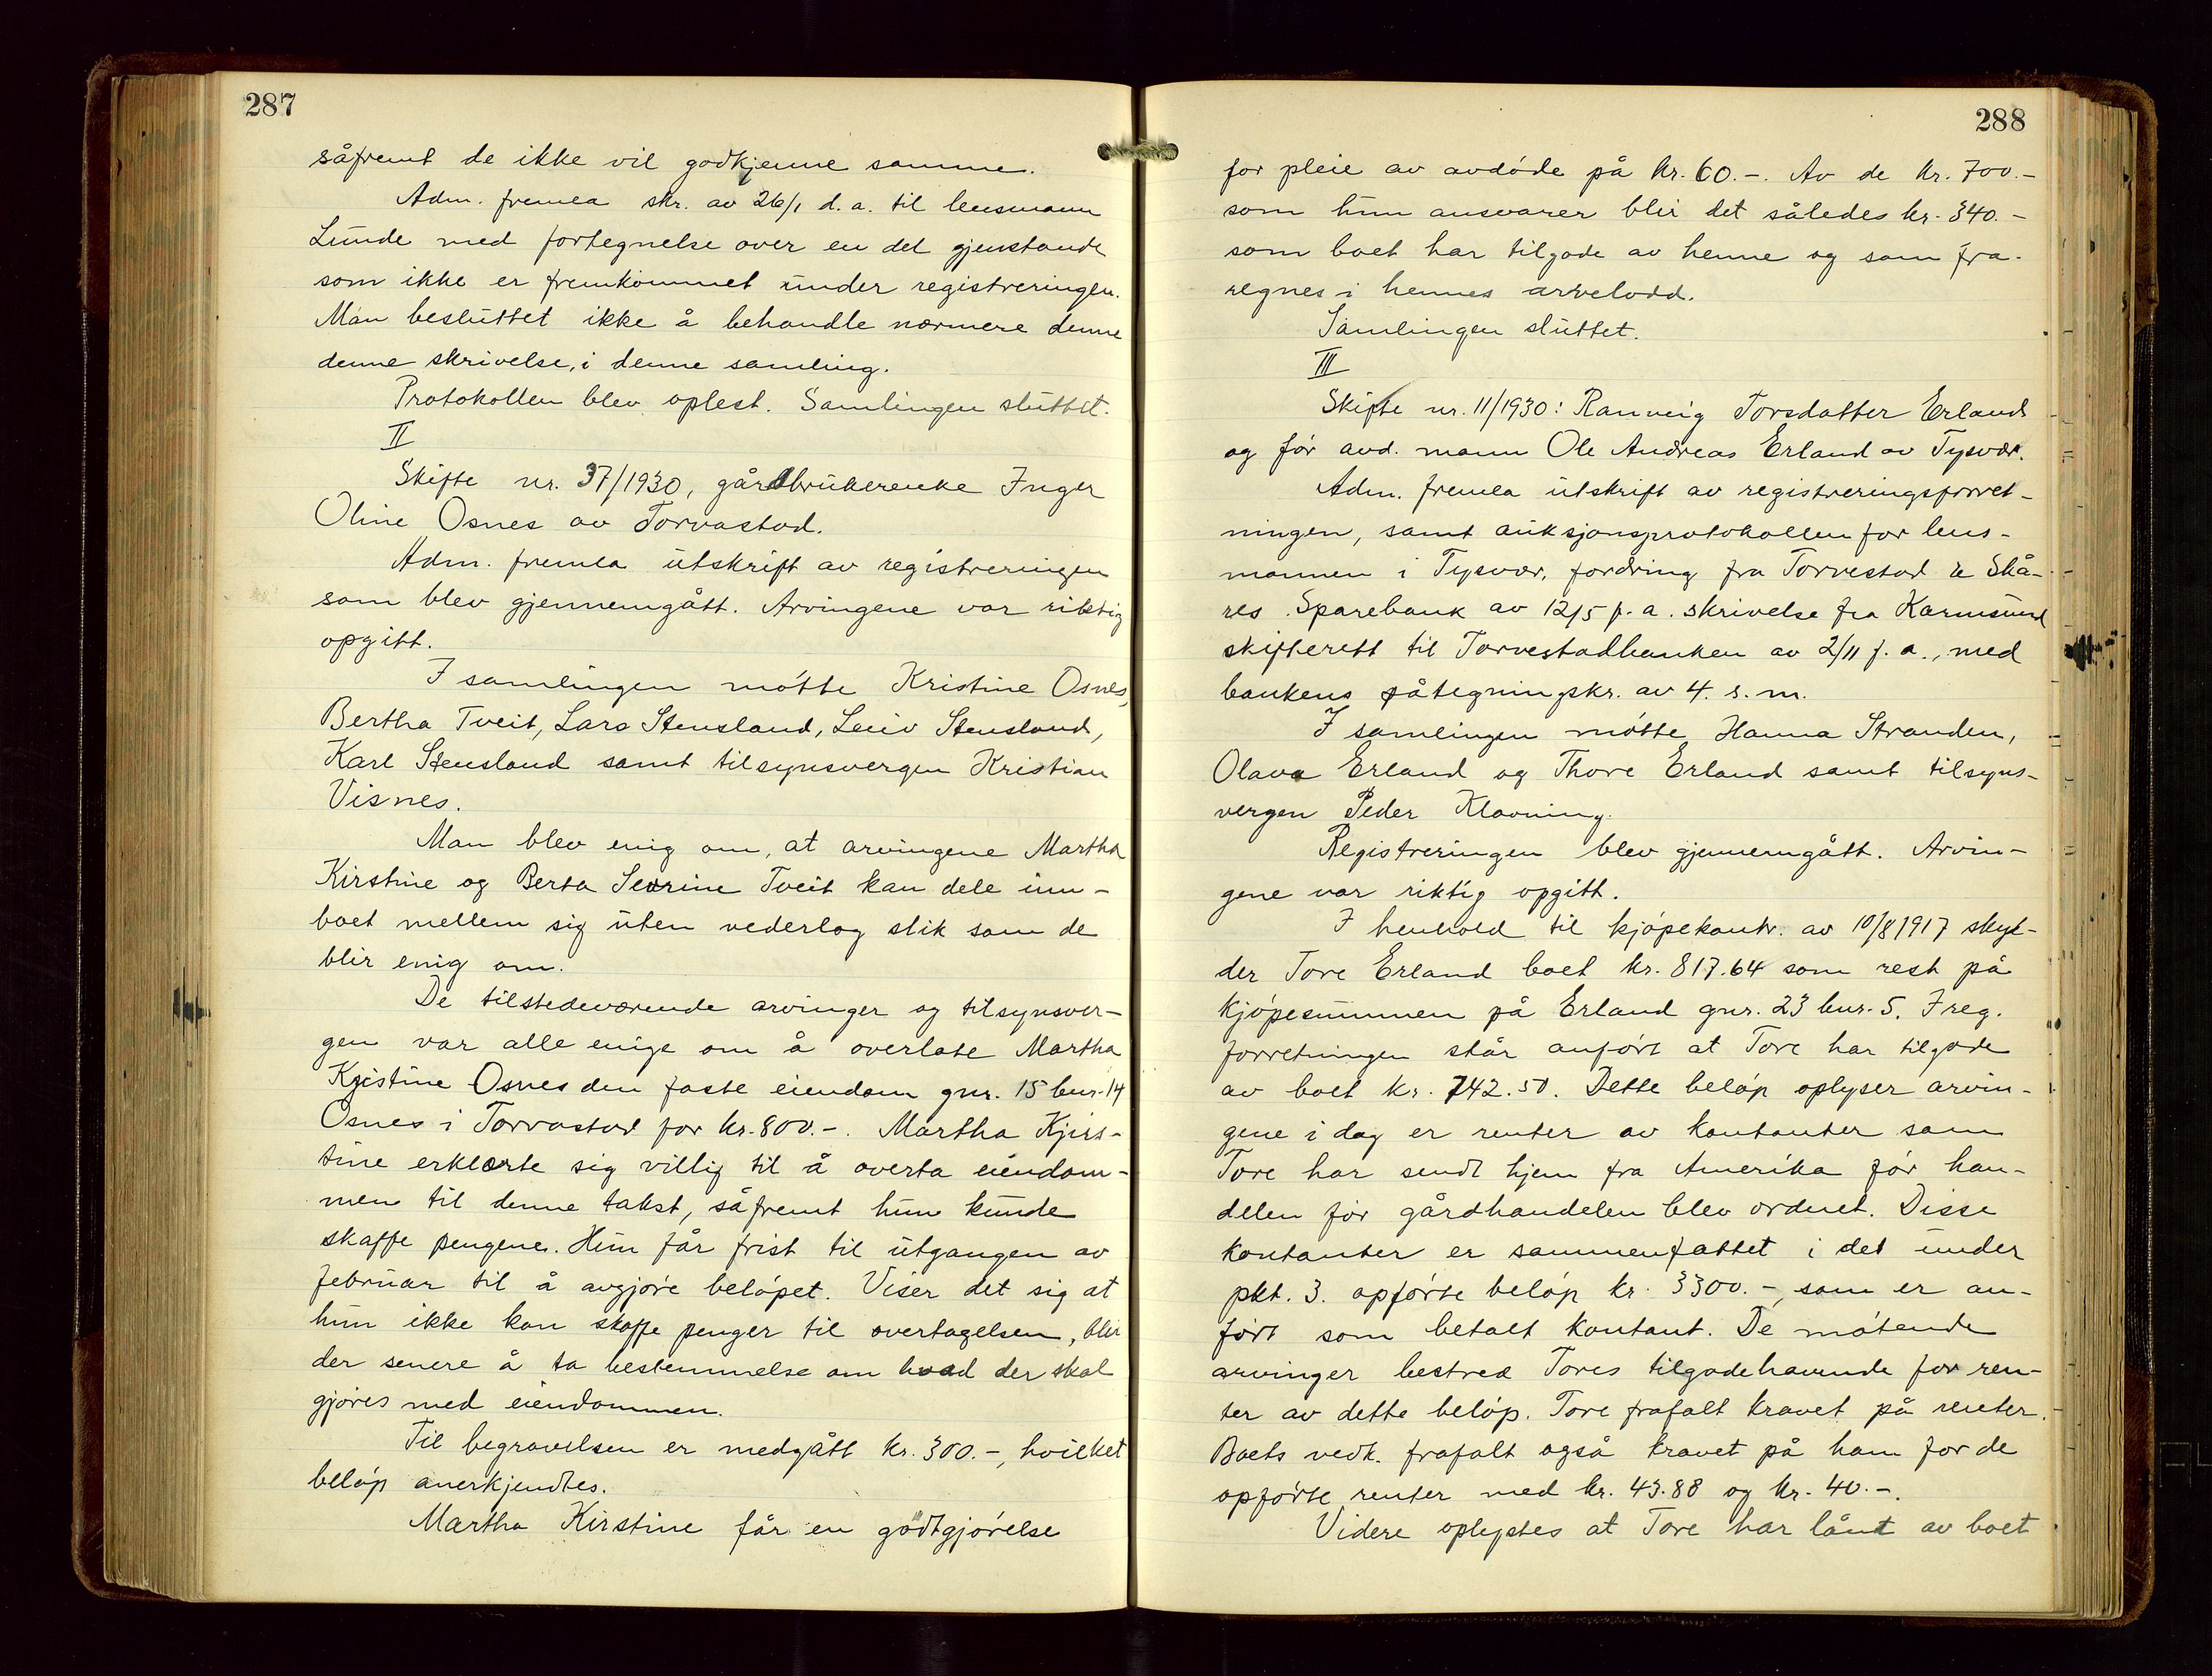 287
såfremt de ikke vil godkjenne samme.
Adm. fremla skr. av 26/1 d. a. til lensmann
Lunde med fortegnelse over en del gjenstande
som ikke er fremkommet under registreringen.
Man besluttet ikke å behandle nærmere denne
denne skrivelse, i denne samling.
Protokollen blev oplest. Samlingen sluttet.
II
Skifte nr. 37/1930, gårdbrukerenke Inger
Oline Osnes av Torvastad.
Adm. fremla utskrift av registreringen
som blev gjennemgått. Arvingene var riktig
opgitt.
I samlingen møtte Kristine Osnes,
Bertha Tveit, Lars Stensland, Leiv Stensland,
Karl Stensland samt tilsynsvergen Kristian
Visnes.
Man blev enig om, at arvingene Martha
Kirstine og Berta Serine Tveit kan dele inn-
boet mellem sig uten vederlag slik som de
blir enig om.
De tilstedeværende arvinger og tilsynsver-
gen var alle enige om å overlate Martha
Kristine Osnes den faste eiendom gnr. 15 bnr. 14
Osnes i Torvastad for kr. 800.-. Martha Kjirs-
tine erklærte sig villig til å overta eiendom-
men til denne takst, såfremt hun kunde
skaffe pengene. Hun får frist til utgangen av
februar til å avgjøre beløpet. Viser det sig at
hun ikke kan skaffe penger til overtagelsen, blir
der senere å ta bestemmelse om hvad der skal
gjøres med eiendommen.
Til begravelsen er medgått kr. 300.-, hvilket
beløp anerkjendtes.
Martha Kirstine får en godtgjørelse
288
for pleie av avdøde på kr. 60.-. Av de kr. 700.-
som hun ansvarer blir det således kr. 340.-
som boet har tilgode av henne og som fra-
regnes i hennes arvelodd.
Samlingen sluttet.
III
Skifte nr. 11/1930: Ranveig Torsdatter Erland
og før avd. mann Ole Andreas Erland av Tysvær.
Adm. fremla utskrift av registreringsforret-
ningen, samt auksjonsprotokollen for lens-
mannen i Tysvær, fordring fra Torvestad & Skå-
res Sparebank av 12/5 f. a. skrivelse fra Karmsund
skifterett til Torvestadbanken av 2/11 f. a., med
bankens påtegningskr. av 4. s. m.
I samlingen møtte Hanna Stranden,
Olava Erland og Thore Erland samt tilsyns-
vergen Peder Klovning.
Registreringen blev gjennemgått. Arvin-
gene var riktig opgitt.
I henhold til kjøpekontr. av 10/8 1917 skyl-
der Tore Erland boet kr. 817.64 som rest på
kjøpesummen på Erland gnr. 23 bnr. 5. I reg.
forretningen står anført at Tore har tilgode
av boet kr. 742.50. Dette beløp oplyser arvin-
gene i dag er renter av kontanter som
Tore har sendt hjem fra Amerika før han-
delen før gårdhandelen blev ordnet. Disse
kontanter er sammenfattet i det under
pkt. 3. opførte beløp kr. 3300.-, som er an-
ført som betalt kontant. De møtende
arvinger bestred Tores tilgodehavende for ren-
ter av dette beløp. Tore frafalt kravet på renter.
Boets vedk. frafalt også kravet på ham for de
opførte renter med kr. 43.88 og kr. 40.-.
Videre oplystes at Tore har lånt av boet